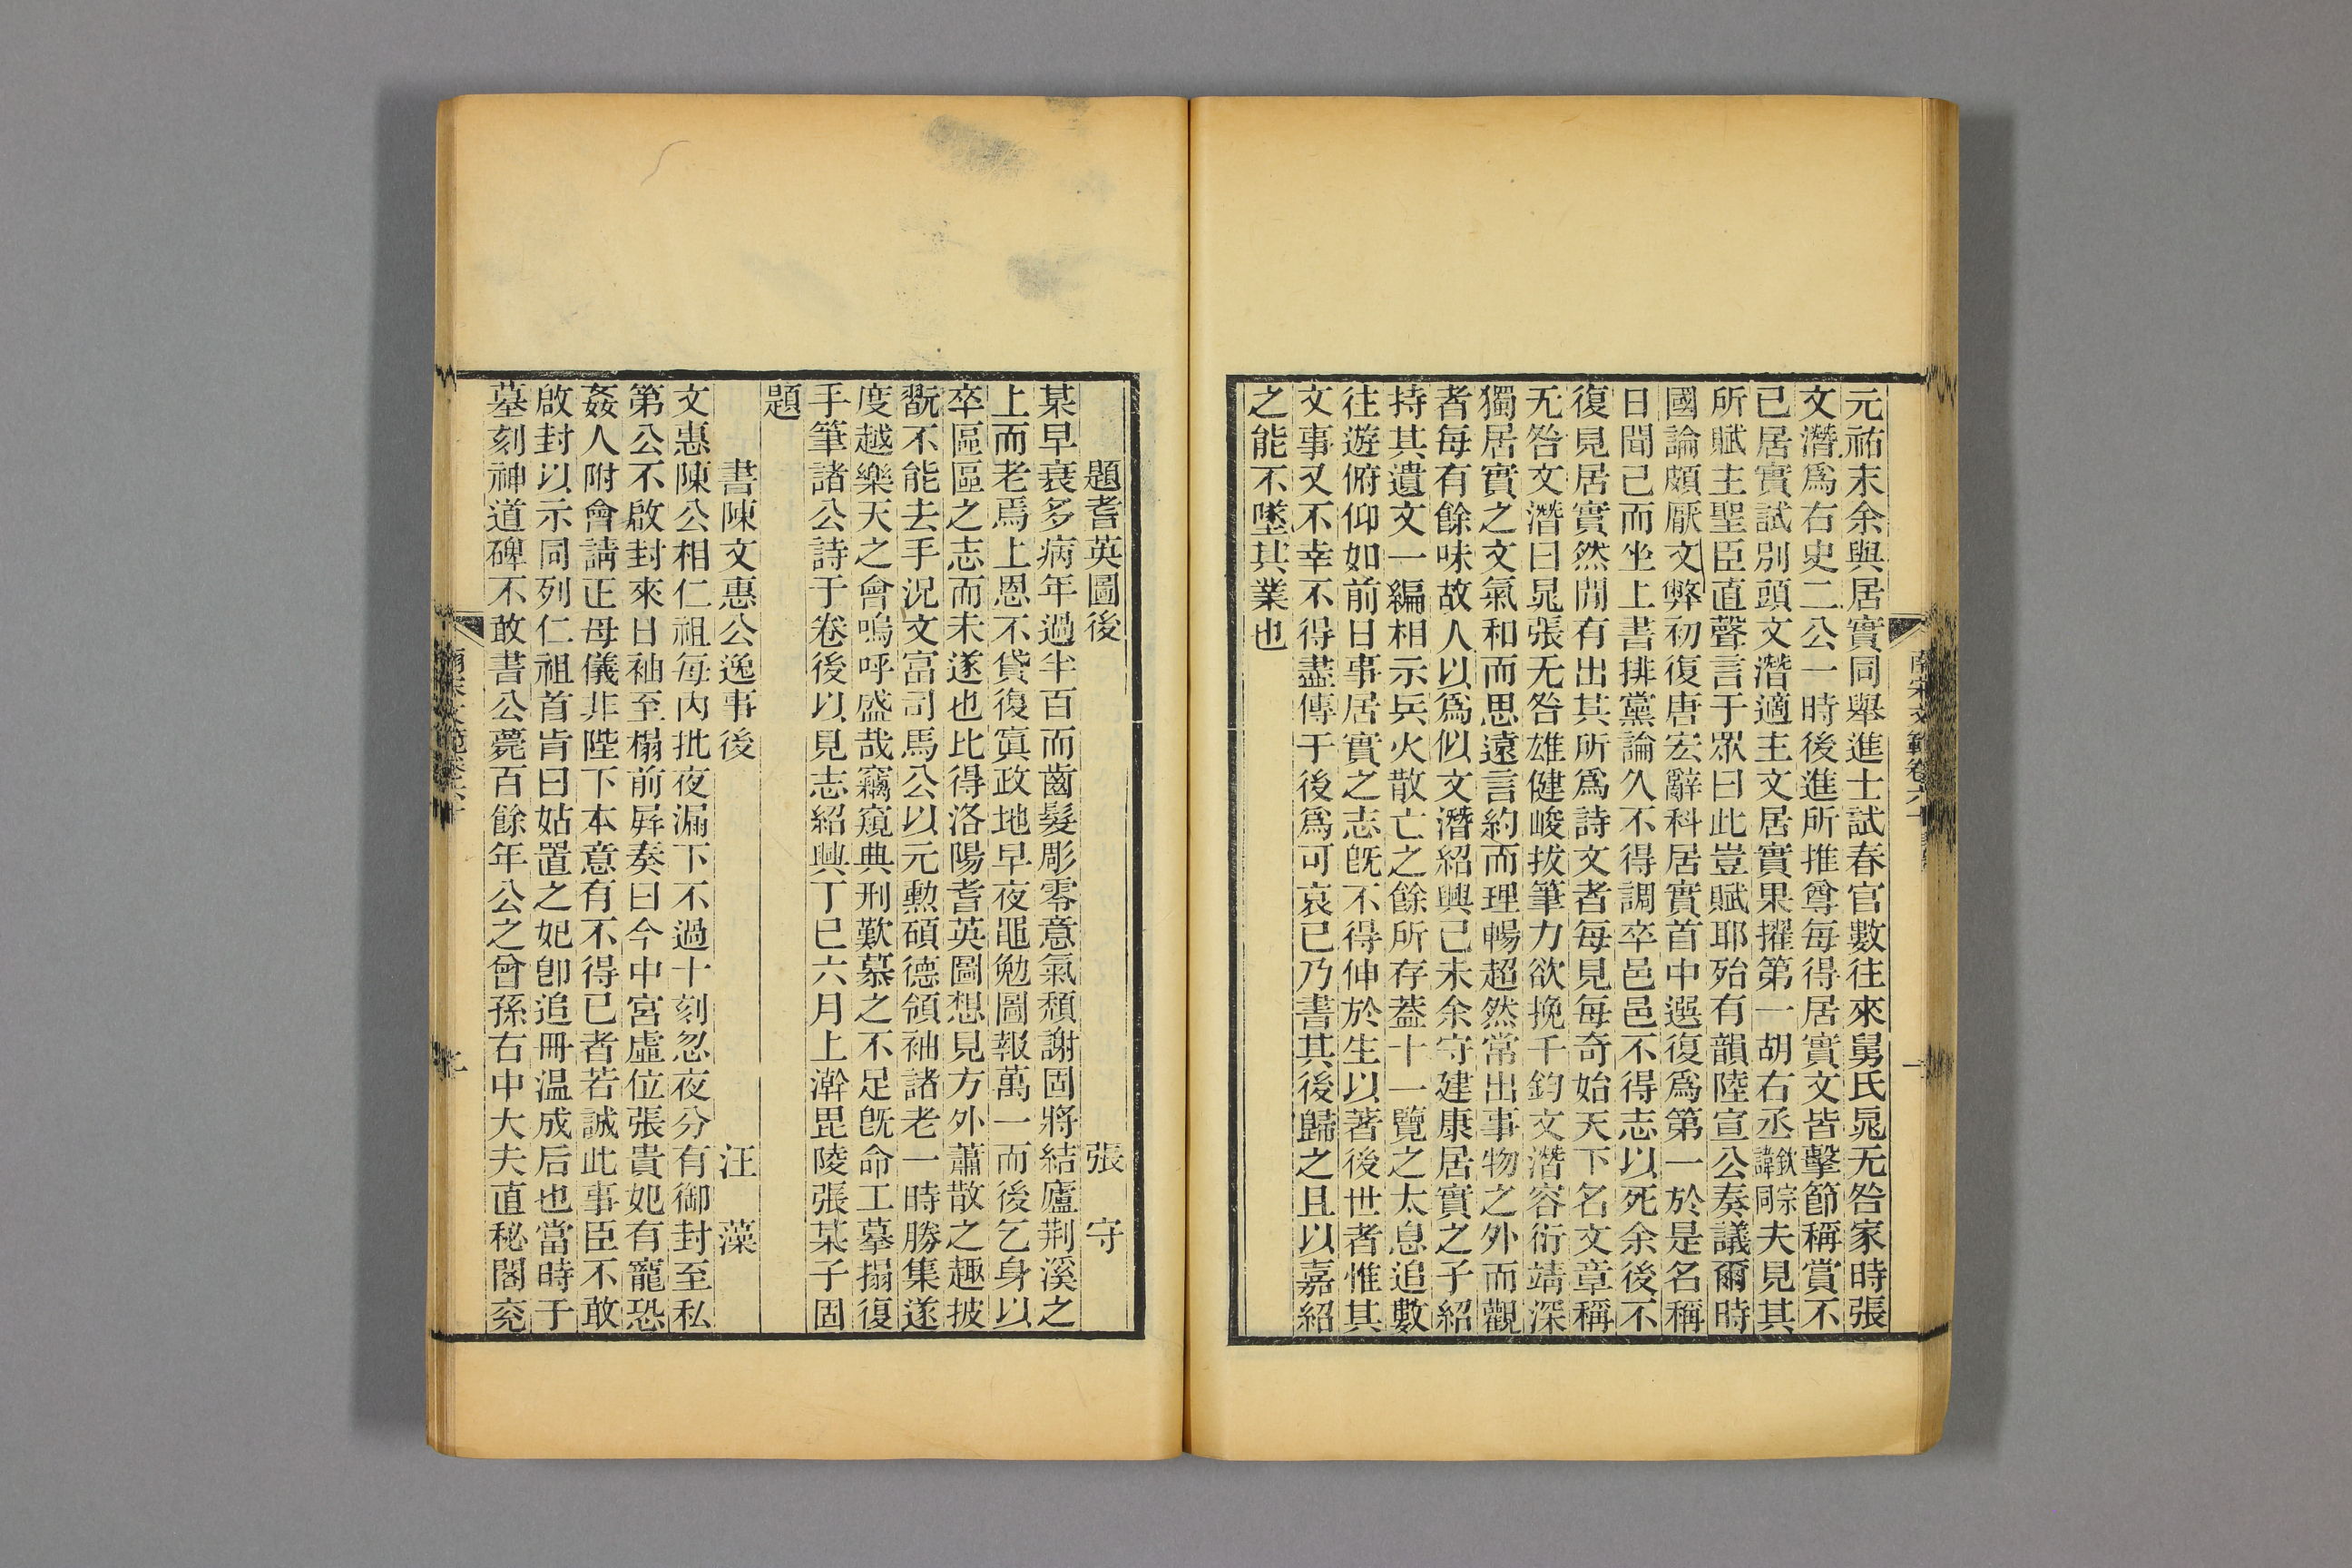 元祐末余與居實同舉進士試春官數往來舅氏晁无咎家時張
文潛爲右史二公一時後進所推尊每得居實文皆擊節稱賞不
已居實試別頭文潛適主文居實果擢第一胡右丞欽宗諱同夫見其
所賦主聖臣直聲言于眾曰此豈賦耶殆有韻陸宣公奏議爾時
國論頗厭文弊初復唐宏辭科居實首中選復爲第一於是名稱
日聞已而坐上書排黨論久不得調卒邑邑不得志以死余後不
復見居實然閒有出其所爲詩文者每見每奇始天下名文章稱
无咎文潛曰晁張无咎雄健峻拔筆力欲挽千鈞文潛容衍靖深
獨居實之文氣和而思遠言約而理暢超然常出事物之外而觀
者每有餘味故人以爲似文潛紹興己未余守建康居實之子紹
持其遺文一編相示兵火散亡之餘所存葢十一覽之太息追數
往遊俯仰如前日事居實之志旣不得伸於生以著後世者惟其
文事又不幸不得盡傳于後爲可哀已乃書其後歸之且以嘉紹
之能不墜其業也
題耆英圖後 張守
某早衰多病年過半百而齒髮彫零意氣頹謝固將結廬荆溪之
上而老焉上恩不貸復寘政地早夜黽勉圖報萬一而後乞身以
卒區區之志而未遂也比得洛陽耆英圖想見方外蕭散之趣披
翫不能去手況文富司馬公以元勲碩德領袖諸老一時勝集遂
度越樂天之會嗚呼盛哉竊窺典刑歎慕之不足旣命工摹搨復
手筆諸公詩于卷後以見志紹興丁巳六月上澣毘陵張某子固
題
書陳文惠公逸事後 汪藻
文惠陳公相仁祖每內批夜漏下不過十刻忽夜分有御封至私
第公不啟封來日袖至榻前屏奏曰今中宮虛位張貴妃有寵恐
姦人附會請正母儀非陛下本意有不得已者若誠此事臣不敢
啟封以示同列仁祖首肯曰姑置之妃卽追冊温成后也當時于
墓刻神道碑不敢書公薨百餘年公之曾孫右中大夫直秘閣兖